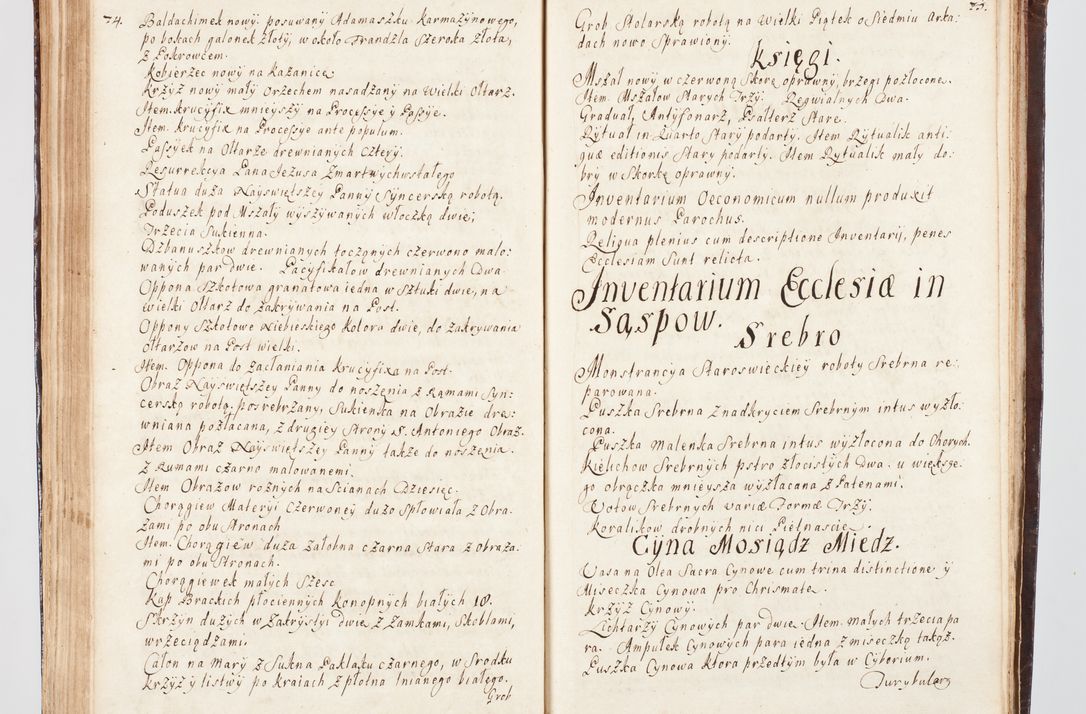 74.
Baldachimek nowy posuwany Adamaszku karmazynowego,
po bokach galonek złoty, w około Frandzla szeroka złota,
z Pokrowcem.
Kobierzec nowy na kazanicę
Krzyż nowy mały Orzechem nasadzany na Wielki Ołtarz.
Item. Krucyfix mnieyszy na Procesye y Passye.
Item. Krucyfix na Processye ante populum.
Passyek na Ołtarze drewnianych cztery.
Resurrekcya Pana Jezusa Zmartwychwstałego
Statua duża Nayswiętszey Panny Syncerską robotą.
Poduszek pod Mszały wyszywanych włoczką dwie,
Trzecia Sukienna.
Dzbanuszkow drewnianych toczonych czerwono malo:
wanych par dwie. Pacyfikałow drewnianych Dwa.
Oppona szkotowa granatowa iedna w sztuki dwie, na
wielki Ołtarz do zakrywania na Post.
Oppony szkotowe Niebieskiego koloru dwie, do zakrywania
Ołtarzow na Post wielki.
Item. Oppona do zasłaniania Krucyfixa na Post.
Obraz Nayswiętszey Panny do noszenia z Ramami Syn:
cerską robotą, posrebrzany, Sukienka na Obrazie dre:
wniana pozłacana, z drugiey strony S. Antoniego Obraz.
Item Obraz Nayświętszey Panny także do noszenia.
z Ramami czarno malowanemi.
Item Obrazow rożnych na Scianach Dziesięć.
Chorągiew Materyi Czerwoney dużo Spłowiała z Obra:
zami po obu Stronach
Item. Chorągiew duża żałobna czarna stara z obraza:
mi po obu Stronach.
Chorągiewek małych Szesc
Kap Brackich płociennych konopnych białych 18.
Skrzyn dużych w zakrystyi dwie z zamkami, Skoblami,
wrzeciądzami.
Całon na Mary z Sukna Paklaku czarnego, w Srodku
krzyż y listwy po kraiach z płotna lnianego białego.
Grob
75.
Grob Stolarską robotą na Wielki Piątek o Siedmiu Arka:
dach nowo Sprawiony.
Księgi.
Mszał nowy w czerwoną Skorę oprawny, brzegi pozłocone.
Item. Mszałow Starych Trzy. Requialnych Dwa.
Graduał, Antyfonarz, Psałterz Stare.
Rytuał in Quarto Stary podarty. Item Rytualik anti:
quæ editionis Stary podarty. Item Rytualik mały do:
bry w Skorkę oprawny.
Inventarium Oeconomicum nullum produxit
modernus Parochus.
Reliqua plenius cum descriptione Inventarij, penes
Ecclesiam Sunt relicta.
Inventarium Ecclesiæ in
Sąspow.
Srebro
Monstrancya Staroswieckiéy roboty Srebrna re:
parowana.
Puszka Srebrna z nadkryciem Srebrnym intus wyzło:
cona.
Puszka malenka Srebrna intus wyzłocona do Chorych.
Kielichow Srebrnych pstro złocistych Dwa. u większe:
go obrączka mnieysza wyzłacana z Patenami.
Wotow Srebrnych variæ Formæ Trzy.
Koralikow drobnych nici Piętnascie.
Cyna Mosiądz Miedz.
Vasa na Olea Sacra Cynowe cum trina distinctione y
Miseczka Cynowa pro Chrismate.
Krzyż Cynowy.
Lichtarzy Cynowych par dwie. Item. Małych trzecia pa
ra. Ampułek Cynowych para iedna z miseczką takąż.
Puszka Cynowa ktora przedtym była w Cyborium.
Turybularz